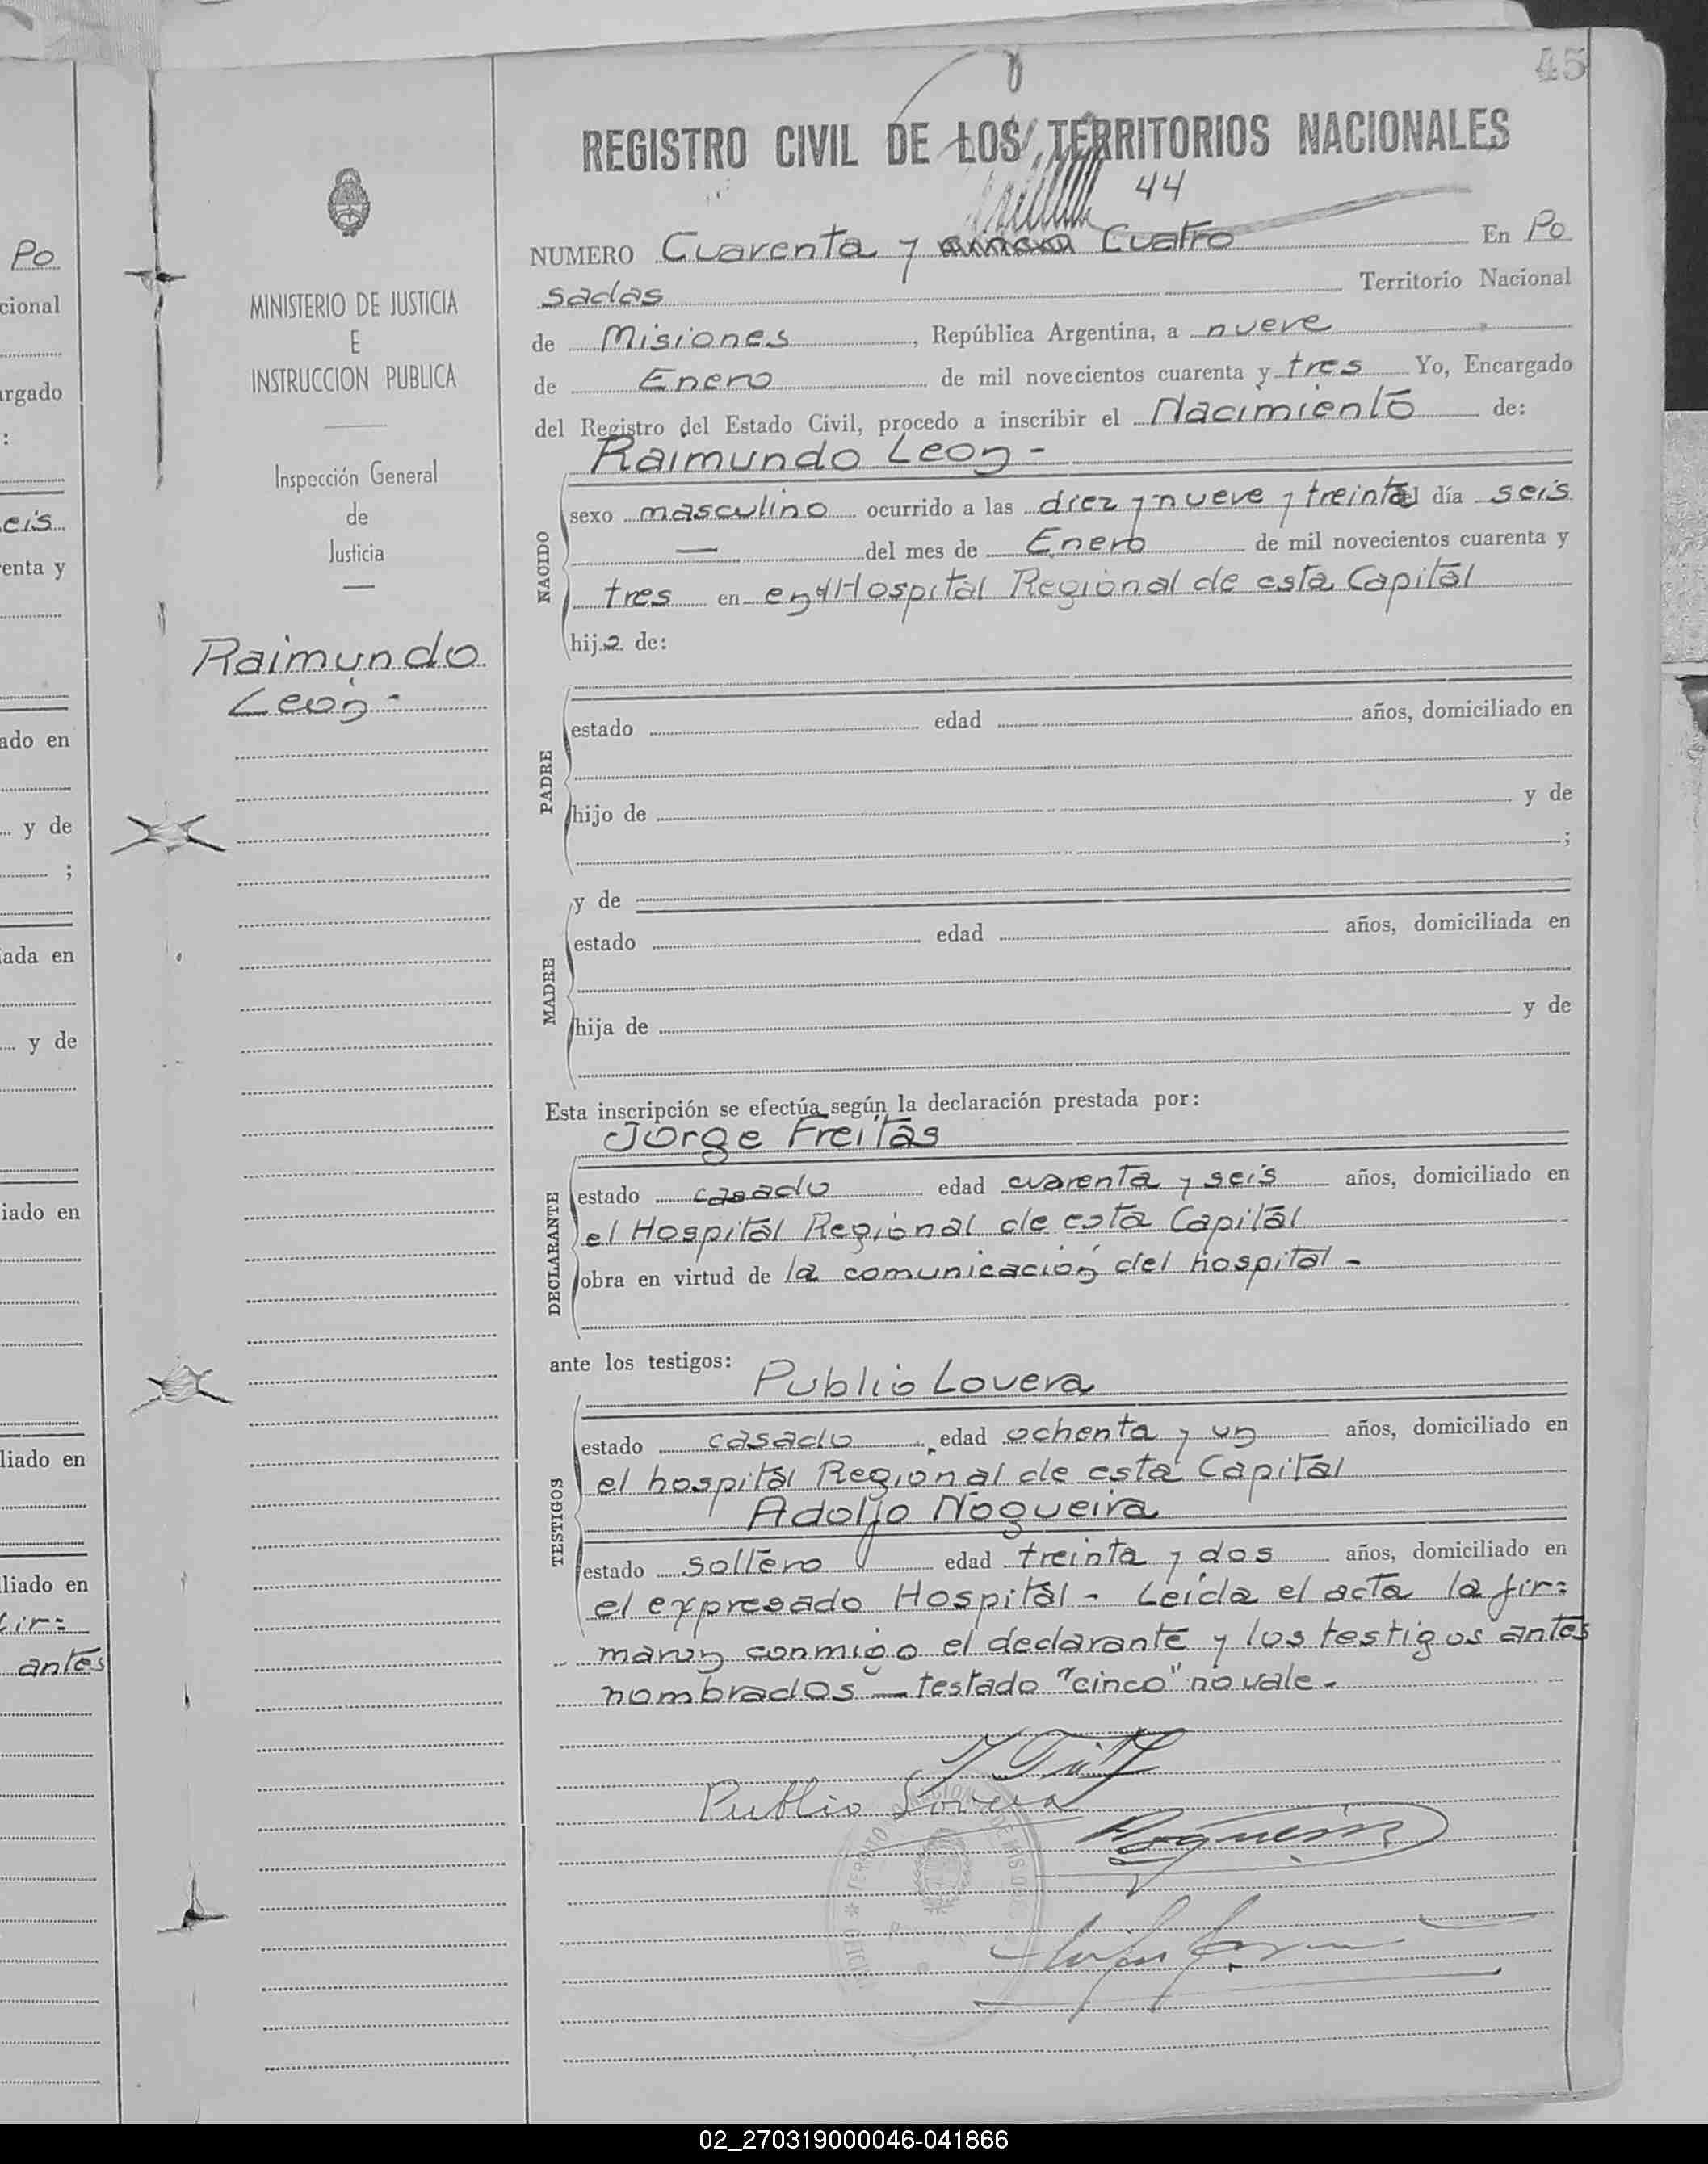 45
REGISTRO CIVIL DE LOS TERRITORIOS NACIONALES
44
NUMERO Cuarenta y cinco Cuatro En Po
sadas Territorio Nacional
de Misiones, República Argentina, a nueve
de Enero de mil novecientos cuarenta y tres Yo, Encargado
del Registro del Estado Civil, procedo a inscribir el Nacimiento de:
Raimundo Leon -
NACIDO
sexo masculino ocurrido a las diez y nueve y treinta el día seis
— del mes de Enero de mil novecientos cuarenta y
tres en en el Hospital Regional de esta Capital
hijo de:
PADRE
estado edad años, domiciliado en
hijo de y de
;
MADRE
y de
estado edad años, domiciliada en
hija de y de
Esta inscripción se efectúa según la declaración prestada por:
Jorge Freitas
DECLARANTE
estado casado edad cuarenta y seis años, domiciliado en
el Hospital Regional de esta Capital
obra en virtud de la comunicación del hospital -
ante los testigos:
Publio Lovera
TESTIGOS
estado casado, edad ochenta y un años, domiciliado en
el hospital Regional de esta Capital
Adolfo Nogueira
estado soltero edad treinta y dos años, domiciliado en
el expresado Hospital - Leída el acta la fir=
maron conmigo el declarante y los testigos antes
nombrados — testado "cinco" no vale -
Publio Lovera
Nogueira
MINISTERIO DE JUSTICIA
E
INSTRUCCION PUBLICA
Inspección General
de
Justicia
Raimundo
Leon -
Po
cional
argado
:
eis
enta y
ado en
y de
;
ada en
y de
iado en
liado en
liado en
fir=
antes
02_270319000046-041866